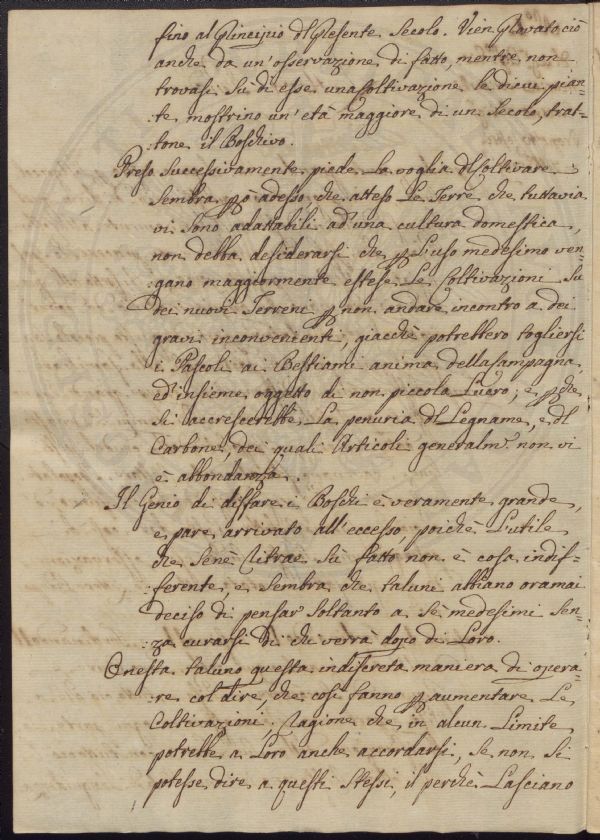 fino al Principio del Presente Secolo. Vien Provato ciò
anche da un'osservazione di fatto, mentre non
trovasi Su di esse una Coltivazione, le di cui pian=
=te mostrino un'età maggiore di un Secolo, trat=
=tone il Boschivo.
Preso Successivamente piede La voglia di Coltivare
Sembra però adesso, che atteso Le Terre che tuttavia
vi Sono adattabili ad una cultura domestica,
non debba desiderarsi che per L'uso medesimo ven=
=gano maggiormente estese Le Coltivazioni Su
dei nuovi Terreni per non andare incontro a dei
gravi inconvenienti, giacchè potrebbero togliersi
i Pascoli ai Bestiami anima della Campagna,
ed insieme oggetto di non piccolo Lucro; e perche
Si accrescerebbe La penuria del Legname, e del
Carbone, dei quali Articoli generalm.e non vi
è abbondanza.
Il Genio di disfare i Boschi è veramente grande,
e pare arrivato all'eccesso, poichè L'utile
che Sen'è Ritrae Sù fatto non è cosa indif=
=ferente, e Sembra che taluni abbiano oramai
deciso di pensar Soltanto a Sè medesimi Sen=
=za curarsi di chi verrà dopo di Loro.
Onesta taluno questa indiscreta maniera di opera=
re col dire, che così fanno per aumentare Le
Coltivazioni: Ragione che in alcun Limite
potrebbe a Loro anche accordarsi, Se non Si
potesse dire a questi Stessi, il perchè Lasciano